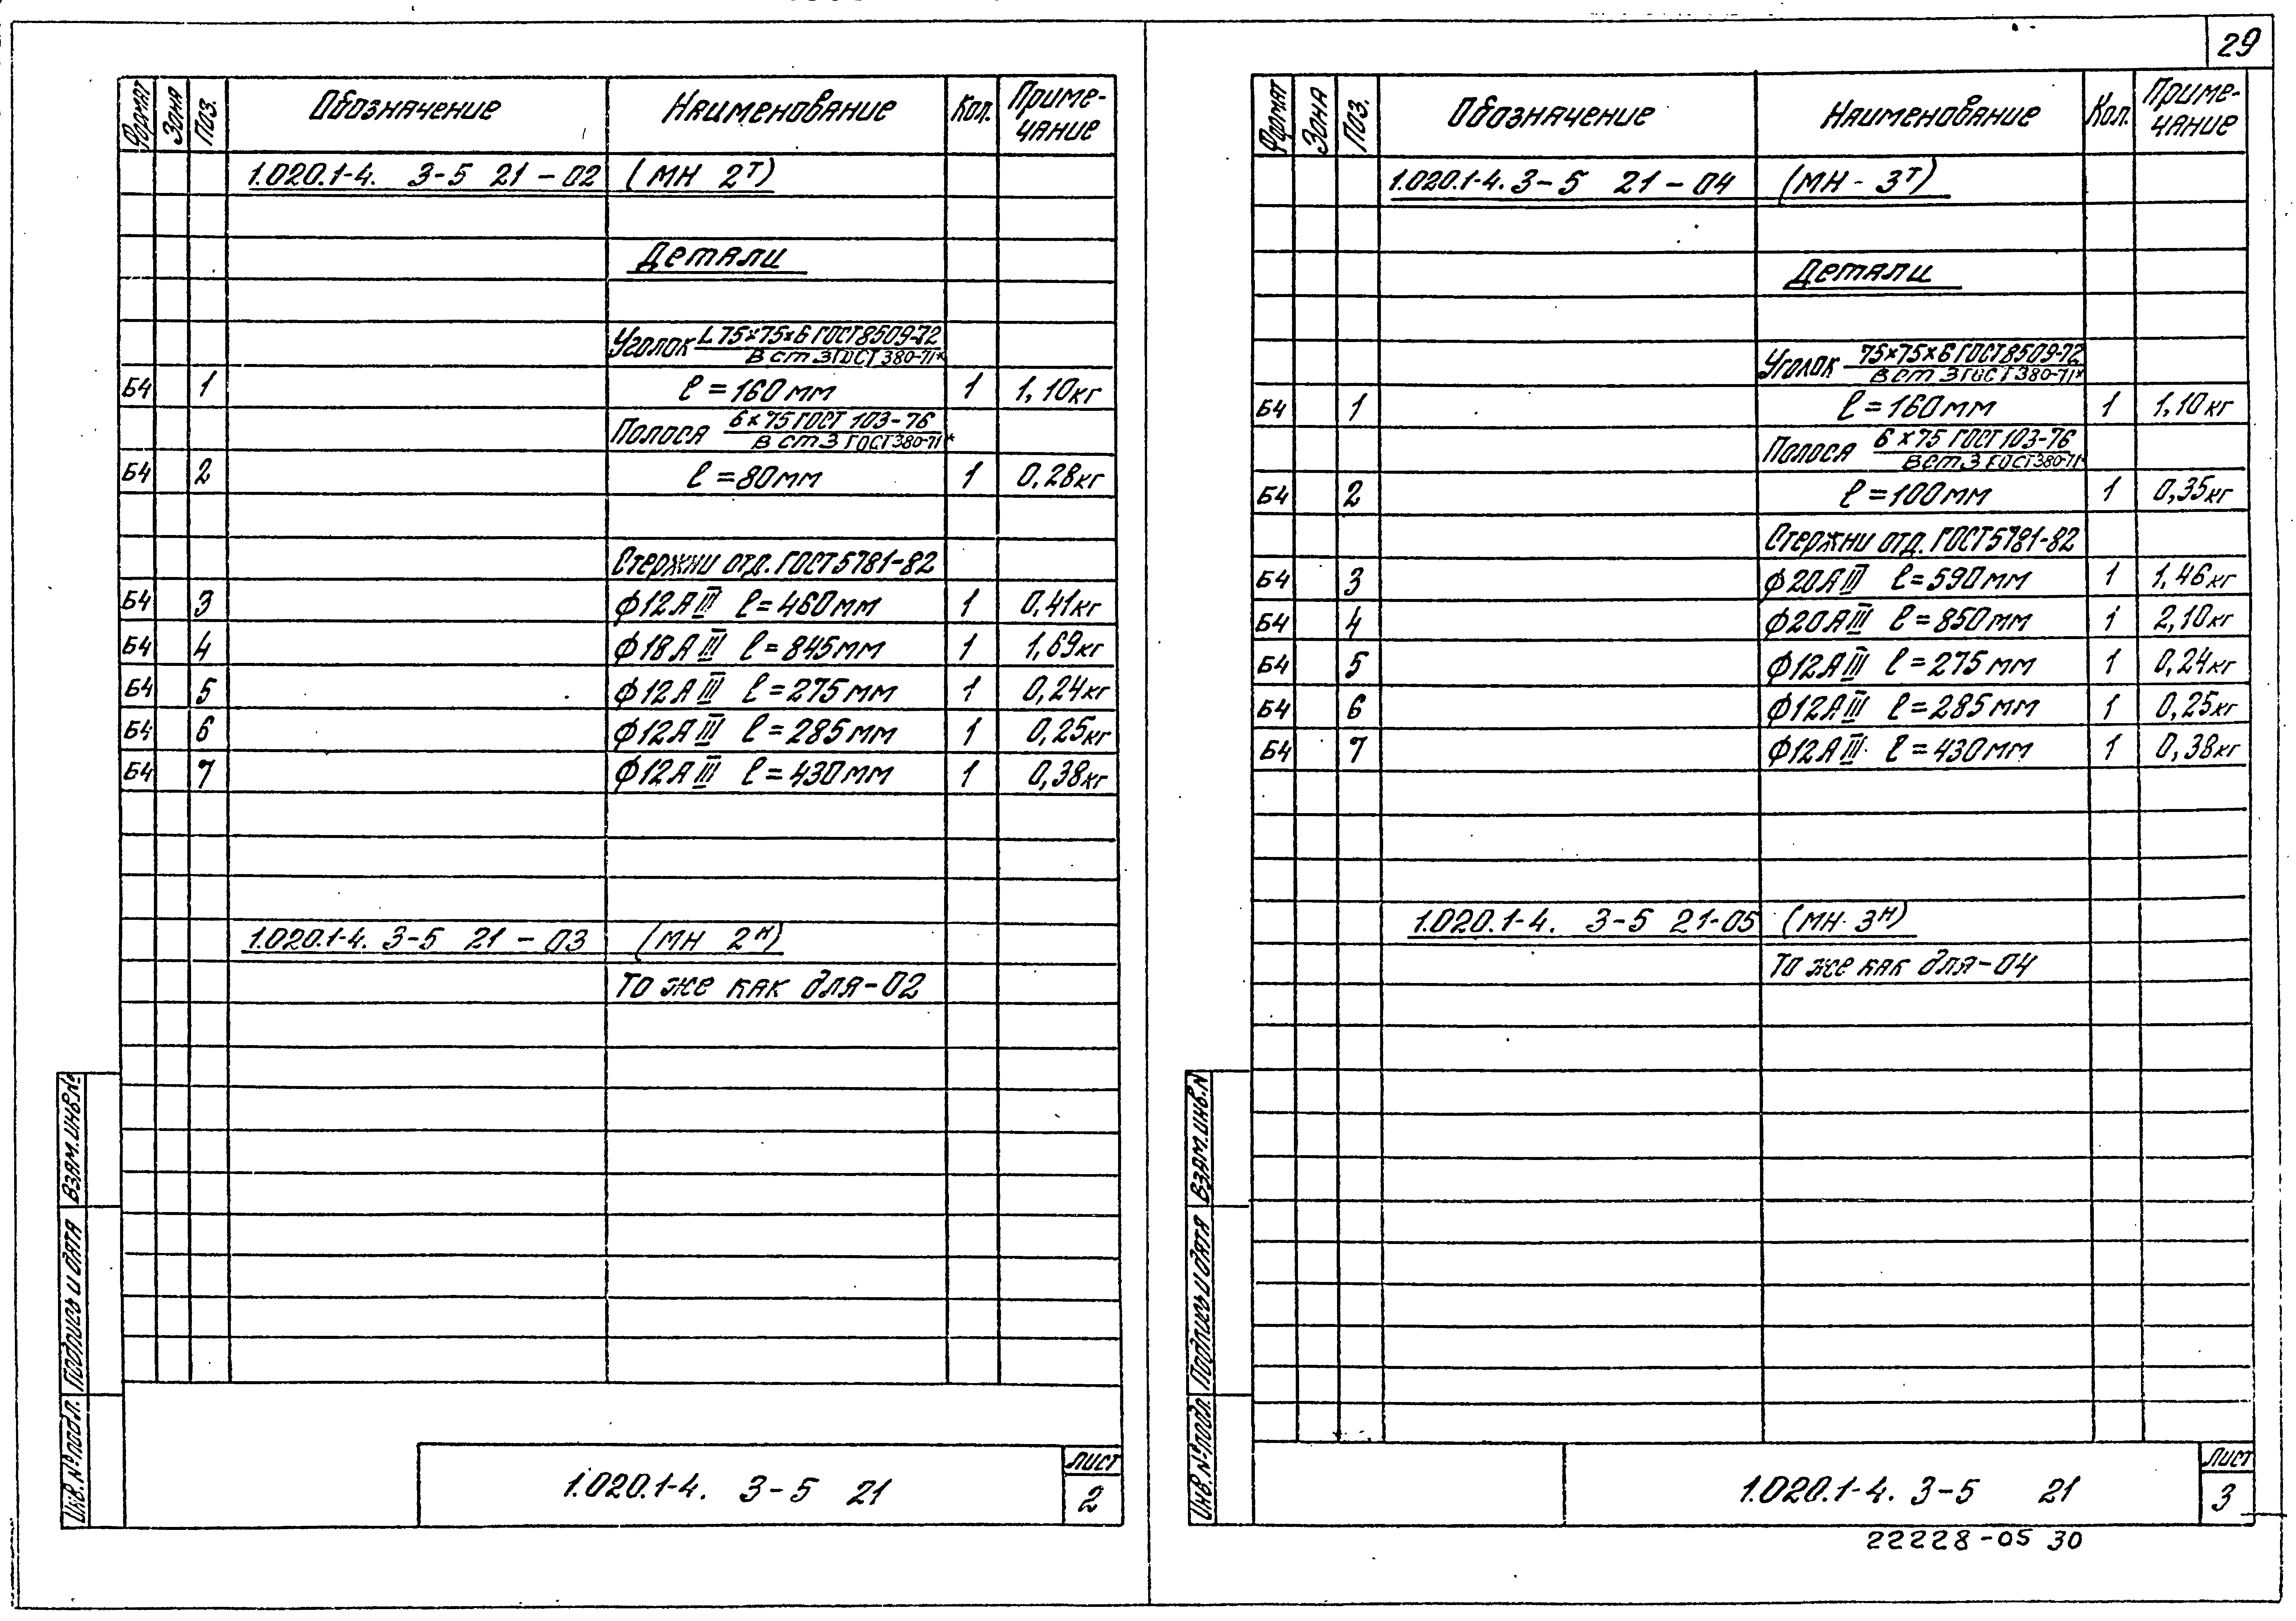 29
Формат Зона Поз. Обозначение Наименование Кол. Приме-
чание
1.020.1-4. 3-5 21-02 (МН 2Т)
Детали
Уголок L 75×75×6 ГОСТ 8509-72
В ст 3 ГОСТ 380-71*
Б4 1 ℓ=160мм 1 1,10кг
Полоса 6×75 ГОСТ 103-76
В ст 3 ГОСТ 380-71*
Б4 2 ℓ=80мм 1 0,28кг
Стержни отд. ГОСТ 5781-82
Б4 3 ф12АIII ℓ=460мм 1 0,41кг
Б4 4 ф18АIII ℓ=845мм 1 1,69кг
Б4 5 ф12АIII ℓ=275мм 1 0,24кг
Б4 6 ф12АIII ℓ=285мм 1 0,25кг
Б4 7 ф12АIII ℓ=430мм 1 0,38кг
1.020.1-4. 3-5 21-03 (МН 2Н)
То же как для-02
Взам.инв.№
Подпись и дата
Инв.№ подл.
1.020.1-4. 3-5 21
Лист
2
Формат Зона Поз. Обозначение Наименование Кол. Приме-
чание
1.020.1-4. 3-5 21-04 (МН-3Т)
Детали
Уголок 75×75×6 ГОСТ 8509-72
В ст 3 ГОСТ 380-71*
Б4 1 ℓ=160мм 1 1,10кг
Полоса 6×75 ГОСТ 103-76
В ст 3 ГОСТ 380-71*
Б4 2 ℓ=100мм 1 0,35кг
Стержни отд. ГОСТ 5781-82
Б4 3 ф20АIII ℓ=590мм 1 1,46кг
Б4 4 ф20АIII ℓ=850мм 1 2,10кг
Б4 5 ф12АIII ℓ=275мм 1 0,24кг
Б4 6 ф12АIII ℓ=285мм 1 0,25кг
Б4 7 ф12АIII ℓ=430мм 1 0,38кг
1.020.1-4. 3-5 21-05 (МН-3Н)
То же как для-04
Взам.инв.N
Подпись и дата
Инв.№ подл.
1.020.1-4. 3-5 21
Лист
3
22228-05 30